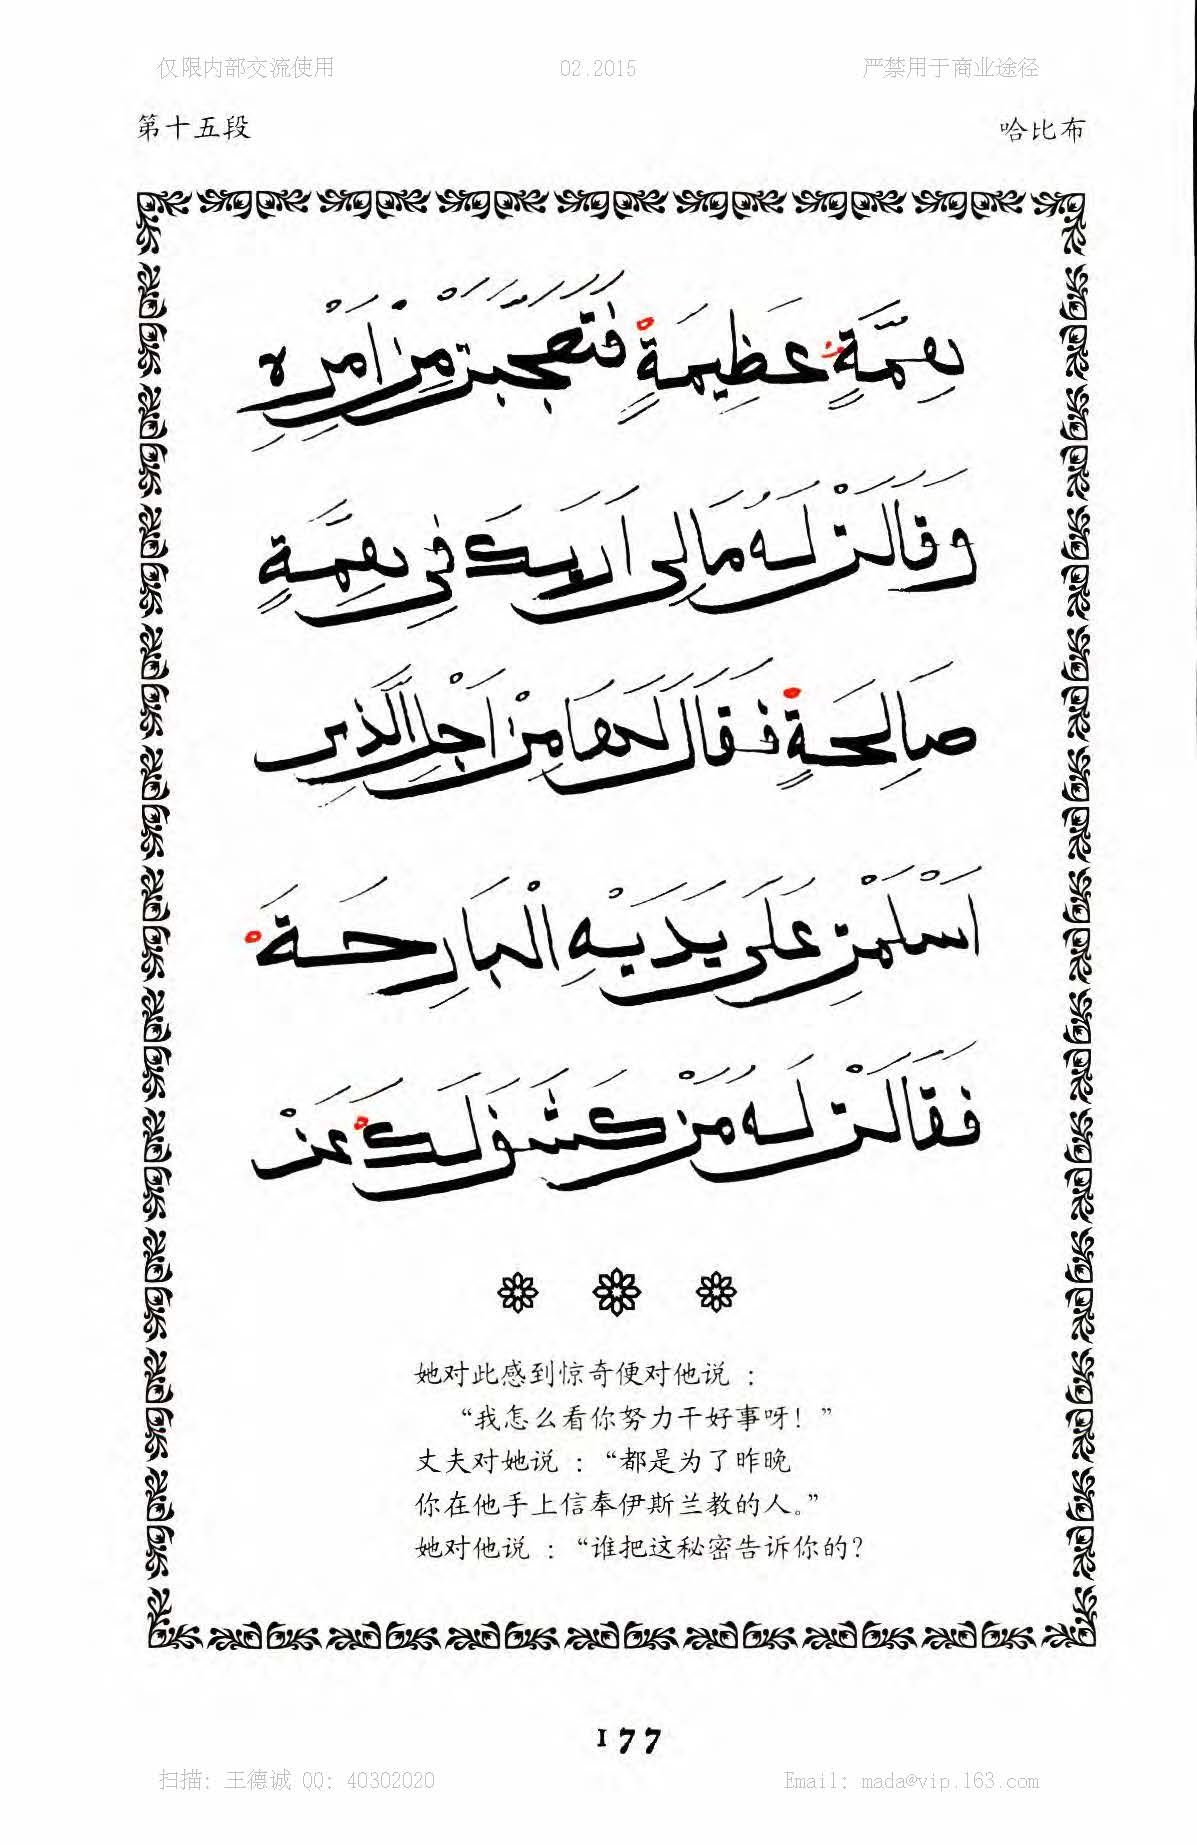 仅限内部交流使用 02.2015 严禁用于商业途径
第十五段 哈比布
بِهِمَّةٍ عَظِيمَةٍ فَتَعَجَّبَتْ مِنْ اَمْرِهِ
وَقَالَتْ لَهُ مَالِى اَرَيكَ فِى بِهِمَّةٍ
صَالِحَةٍ فَقَالَ لَهَا مِنْ اَجْلِ الَّذِى
اَسْلَمْتِ عَلَى يَدَيْهِ الْبَارِحَةَ
فَقَالَتْ لَهُ مَنْ كَشَفَ لَكَ عَنْ
她对此感到惊奇便对他说 :
“我怎么看你努力干好事呀! ”
丈夫对她说 : “都是为了昨晚
你在他手上信奉伊斯兰教的人。”
她对他说 : “谁把这秘密告诉你的?
177
扫描: 王德诚 QQ: 40302020 Email: mada@vip.163.com